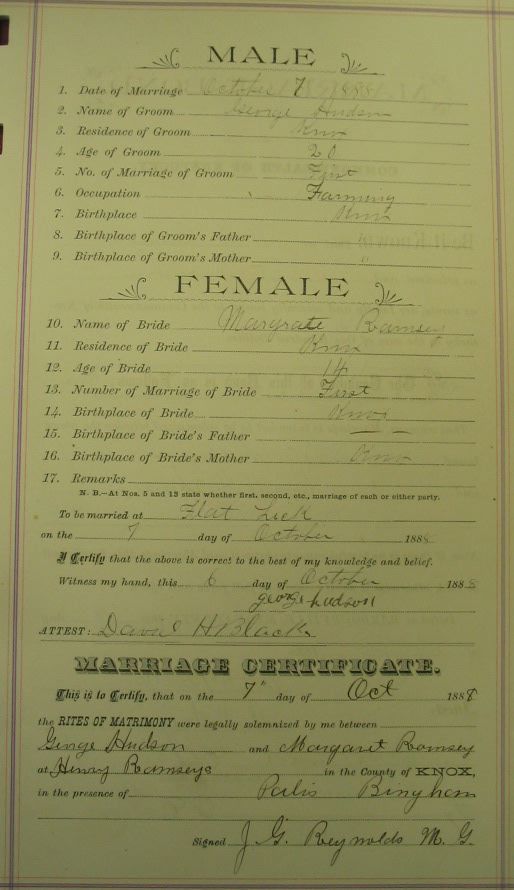 MALE
1. Date of Marriage October 7 1888
2. Name of Groom George Hudson
3. Residence of Groom Knox
4. Age of Groom 20
5. No. of Marriage of Groom First
6. Occupation Farming
7. Birthplace Knox
8. Birthplace of Groom's Father "
9. Birthplace of Groom's Mother "
FEMALE
10. Name of Bride Margrate Ramsey
11. Residence of Bride Knox
12. Age of Bride 14
13. Number of Marriage of Bride First
14. Birthplace of Bride Knox
15. Birthplace of Bride's Father — —
16. Birthplace of Bride's Mother Knox
17. Remarks
N. B.—At Nos. 5 and 13 state whether first, second, etc., marriage of each or either party.
To be married at Flat Lick
on the 7 day of October 1888
I Certify that the above is correct to the best of my knowledge and belief.
Witness my hand, this 6 day of October 1888
george hudson
ATTEST: David H Black
MARRIAGE CERTIFICATE.
This is to Certify, that on the 7" day of Oct 1888
the RITES OF MATRIMONY were legally solemnized by me between
George Hudson and Margaret Ramsey
at Henry Ramseys in the County of KNOX,
in the presence of Bingham
Signed J. G. Reynolds M. G.